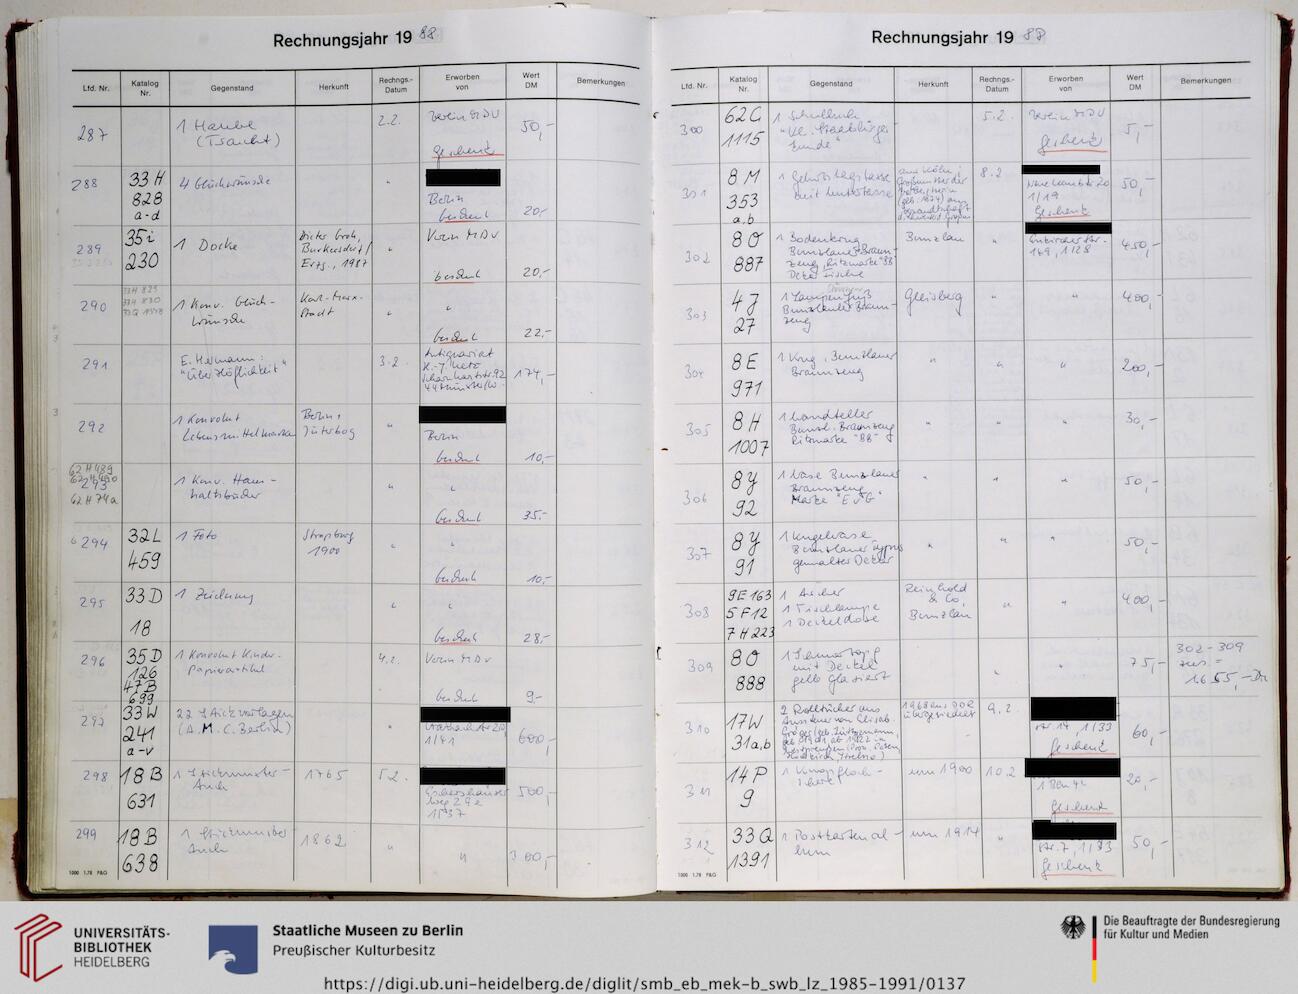 Rechnungsjahr 19 88
Lfd. Nr.
Katalog Nr.
Gegenstand
Herkunft
Rechngs.-Datum
Erworben von
Wert DM
Bemerkungen
287
1 Haube
(Tracht)
2.2.
Verein MDV
Geschenk
50,-
288
33 H
828
a-d
4 Glückwünsche
"
Berlin
20,-
289
35i
230
1 Docke
Dieter Groh,
Burkersdorf/
Erzg., 1987
"
Verein MDV
20,-
290
33H 829
33H 830
1 Konv. Glück-
wünsche
Karl-Marx-
Stadt
"
"
22,-
291
E. Hermann:
"Über Höflichkeit"
3.2.
Antiquariat
174,-
292
1 Konvolut
Lebensmittelmarken
Berlin,
Jüterbog
"
Berlin
10,-
62 H 489
62 H 490
293
62 H 74a
1 Konv. Haus-
haltsbücher
"
"
35,-
294
32L
459
1 Foto
Strasburg
1900
"
"
10,-
295
33D
18
1 Zeichnung
"
"
28,-
296
35D
126
47B
699
1 Konvolut Kinder-
Papierartikel
4.2.
Verein MDV
9,-
297
33W
241
a-v
22 Stickvorlagen
(A.M.C. Berlin)
"
1/41
600,-
298
18 B
631
1 Stickmuster-
tuch
1765
5.2.
Eschershauser
Weg 29e
1/37
500,-
299
18 B
638
1 Stickmuster
tuch
1862
"
"
300,-
1000 1.78 P&G
Rechnungsjahr 19 88
Lfd. Nr.
Katalog Nr.
Gegenstand
Herkunft
Rechngs.-Datum
Erworben von
Wert DM
Bemerkungen
300
62G
1115
1 Schulbuch
"Kl. Staatsbürger-
kunde"
5.2.
Verein MDV
Geschenk
5,-
301
8 M
353
a,b
1 Geburtstagstasse
mit Untertasse
aus Köln,
Großmutter der
8.2.
1/19
Geschenk
50,-
302
8 O
887
1 Bodenkrug
Bunzlauer Braun-
zeug, Ritzmarke "88"
Dekor Fische
Bunzlau
"
149, 1/28
450,-
303
4J
27
1 Lampenfuß
Bunzlauer Braun-
zeug
Gleisberg
"
"
400,-
304
8 E
971
1 Krug, Bunzlauer
Braunzeug
"
"
"
200,-
305
8 H
1007
1 Wandteller
Bunzl. Braunzeug
Ritzmarke "88"
"
"
"
30,-
306
8y
92
1 Vase Bunzlauer
Braunzeug
Marke "EvG"
"
"
"
50,-
307
8y
91
1 Kugelvase
Bunzlauer Typus
gemalter Dekor
"
"
"
50,-
308
9E 163
5 F12
7 H 223
1 Ascher
1 Tischlampe
1 Deckeldose
Reinhold
& Co,
Bunzlau
"
"
400,-
309
80
888
mit Deckel
gelb glasiert
"
"
75,-
302-309
zus. =
1655,- DM
310
17W
31a,b
2 Rolltücher aus
Aussteuer von Elisab.
1968 aus DDR
übergesiedelt
9.2.
Str. 14, 1/33
Geschenk
60,-
311
14 P
9
1 Knopfloch-
schere
um 1900
10.2
1 Bln 42
Geschenk
20,-
312
33 Q
1391
1 Postkartenal-
bum
um 1914
"
Str. 7, 1/33
Geschenk
50,-
1000 1.78 P&G
UNIVERSITÄTS-
BIBLIOTHEK
HEIDELBERG
Staatliche Museen zu Berlin
Preußischer Kulturbesitz
Die Beauftragte der Bundesregierung
für Kultur und Medien
https://digi.ub.uni-heidelberg.de/diglit/smb_eb_mek-b_swb_lz_1985-1991/0137